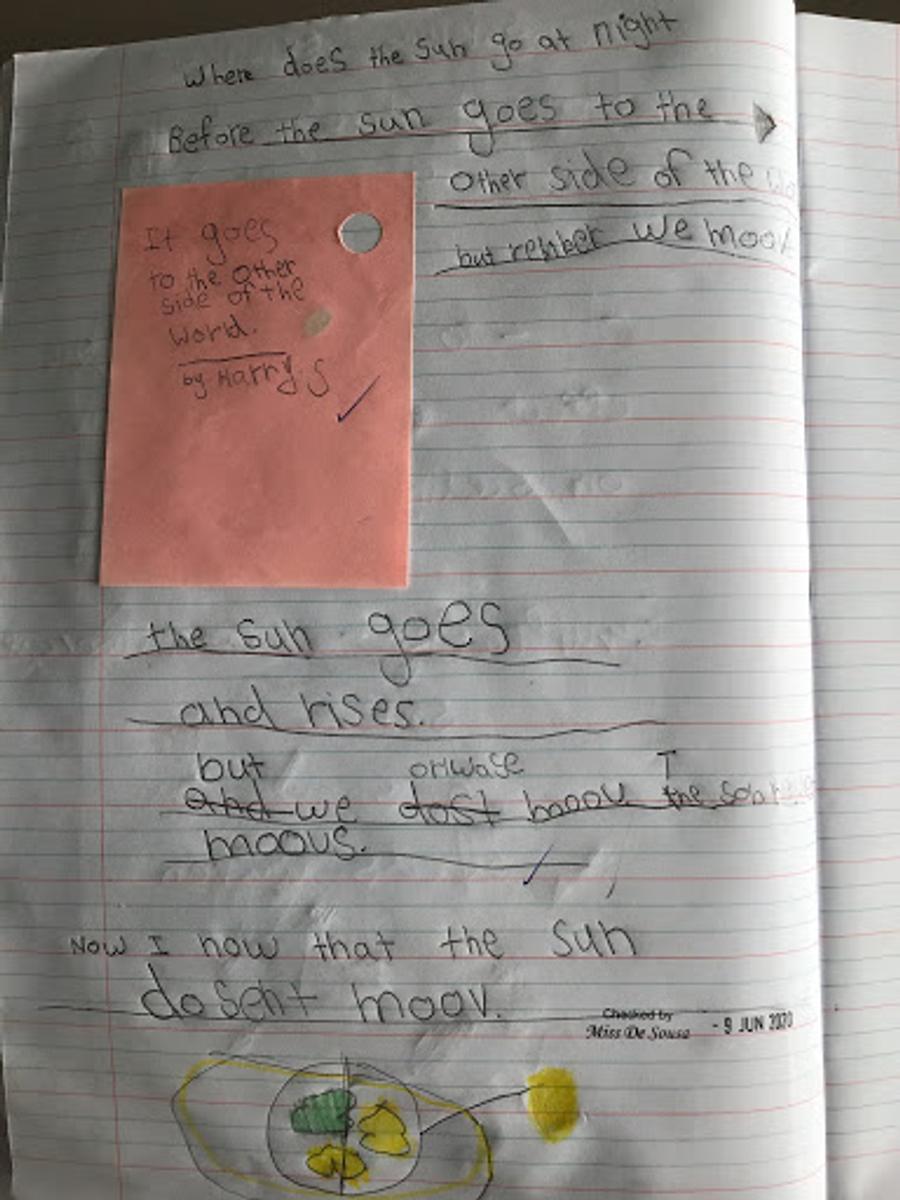 Where does the sun go at night
Before the sun goes to the
Other side of the
but rehber we moov
It goes
to the Other
side of the
World.
by Harry S
the sun goes
and rises.
but oriwase T
and we dost moov the
moovs.
Now I now that the sun
dosent moov.
Checked by
Miss De Sousa - 9 JUN 2020